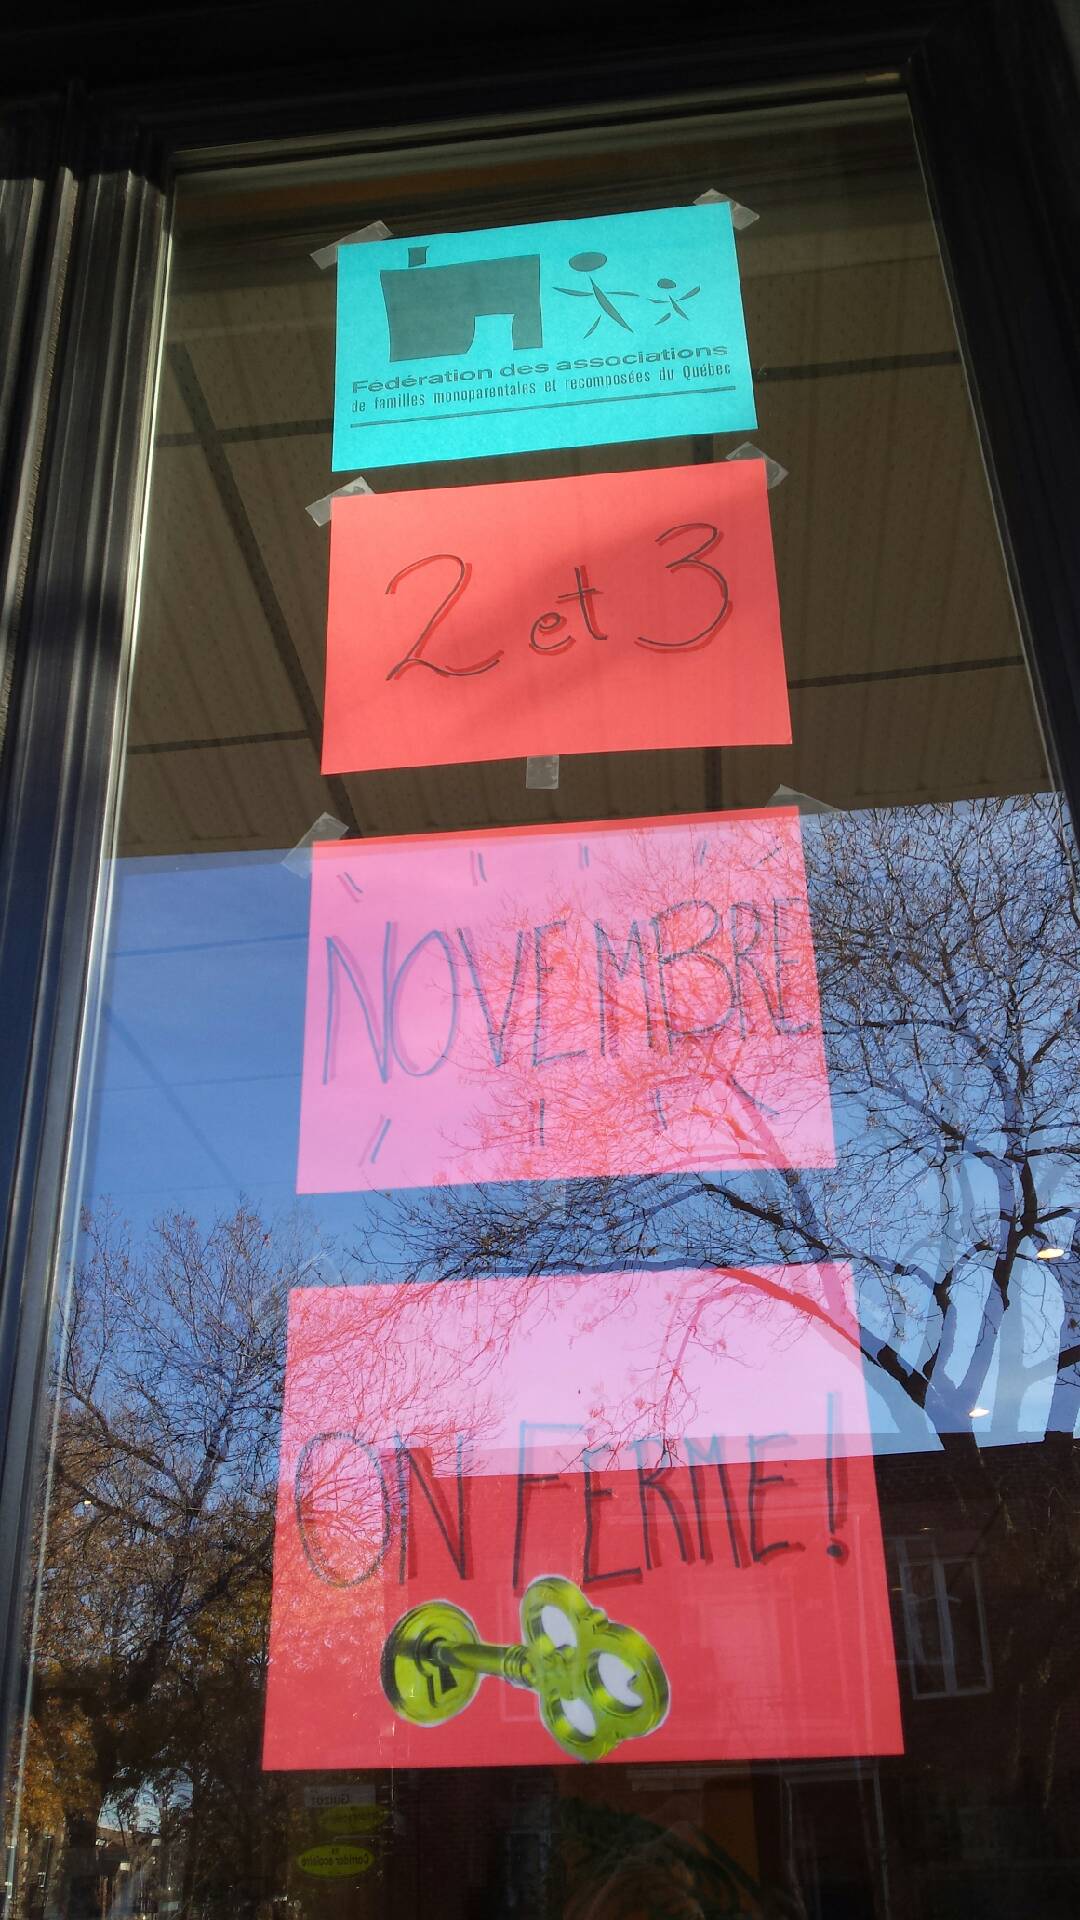 Fédération des associations
de familles monoparentales et recomposées du Québec
2 et 3
NOVEMBRE
ON FERME!
Corridor scolaire